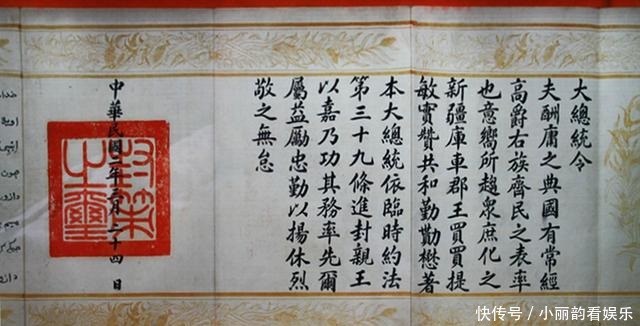 大總統令
夫酬庸之典國有常經
高爵右族齊民之表率
也意嚮所趨衆庶化之
新疆庫車郡王買買提
敏實贊共和勤勩懋著
本大總統依臨時約法
第三十九條進封親王
以嘉乃功其務率先爾
屬益勵忠勤以揚休烈
敬之無怠
中華民國二年三月二十四日
封策之璽
快传号／小丽韵看娱乐